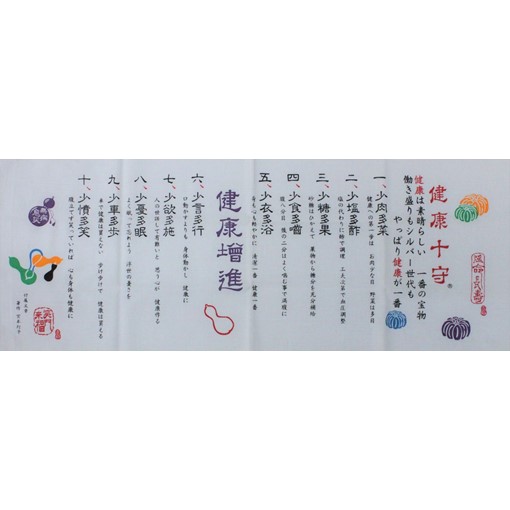 健康十守®
健康は素晴らしい 一番の宝物
働き盛りもシルバー世代も
やっぱり健康が一番
一、少肉多菜
健康への第一歩は お肉少な目 野菜は多目
二、少塩多酢
塩の代わりに酢で調理 工夫次第で血圧調整
三、少糖多果
砂糖はひかえて 果物から糖分を充分補給
四、少食多噛
腹八分目 残の二分はよく噛む事で満腹に
五、少衣多浴
身も心も軽やかに 清潔一番 健康一番
健康増進
六、少言多行
口動かすよりも 身体動かし 健康に
七、少欲多施
人の世話して有難いと 思う心が 健康作る
八、少憂多眠
よく眠って忘れよう 浮世の憂さを
九、少車多歩
車で健康は買えない 歩け歩けで 健康は買える
十、少憤多笑
腹立てず笑っていれば 心も身体も健康に